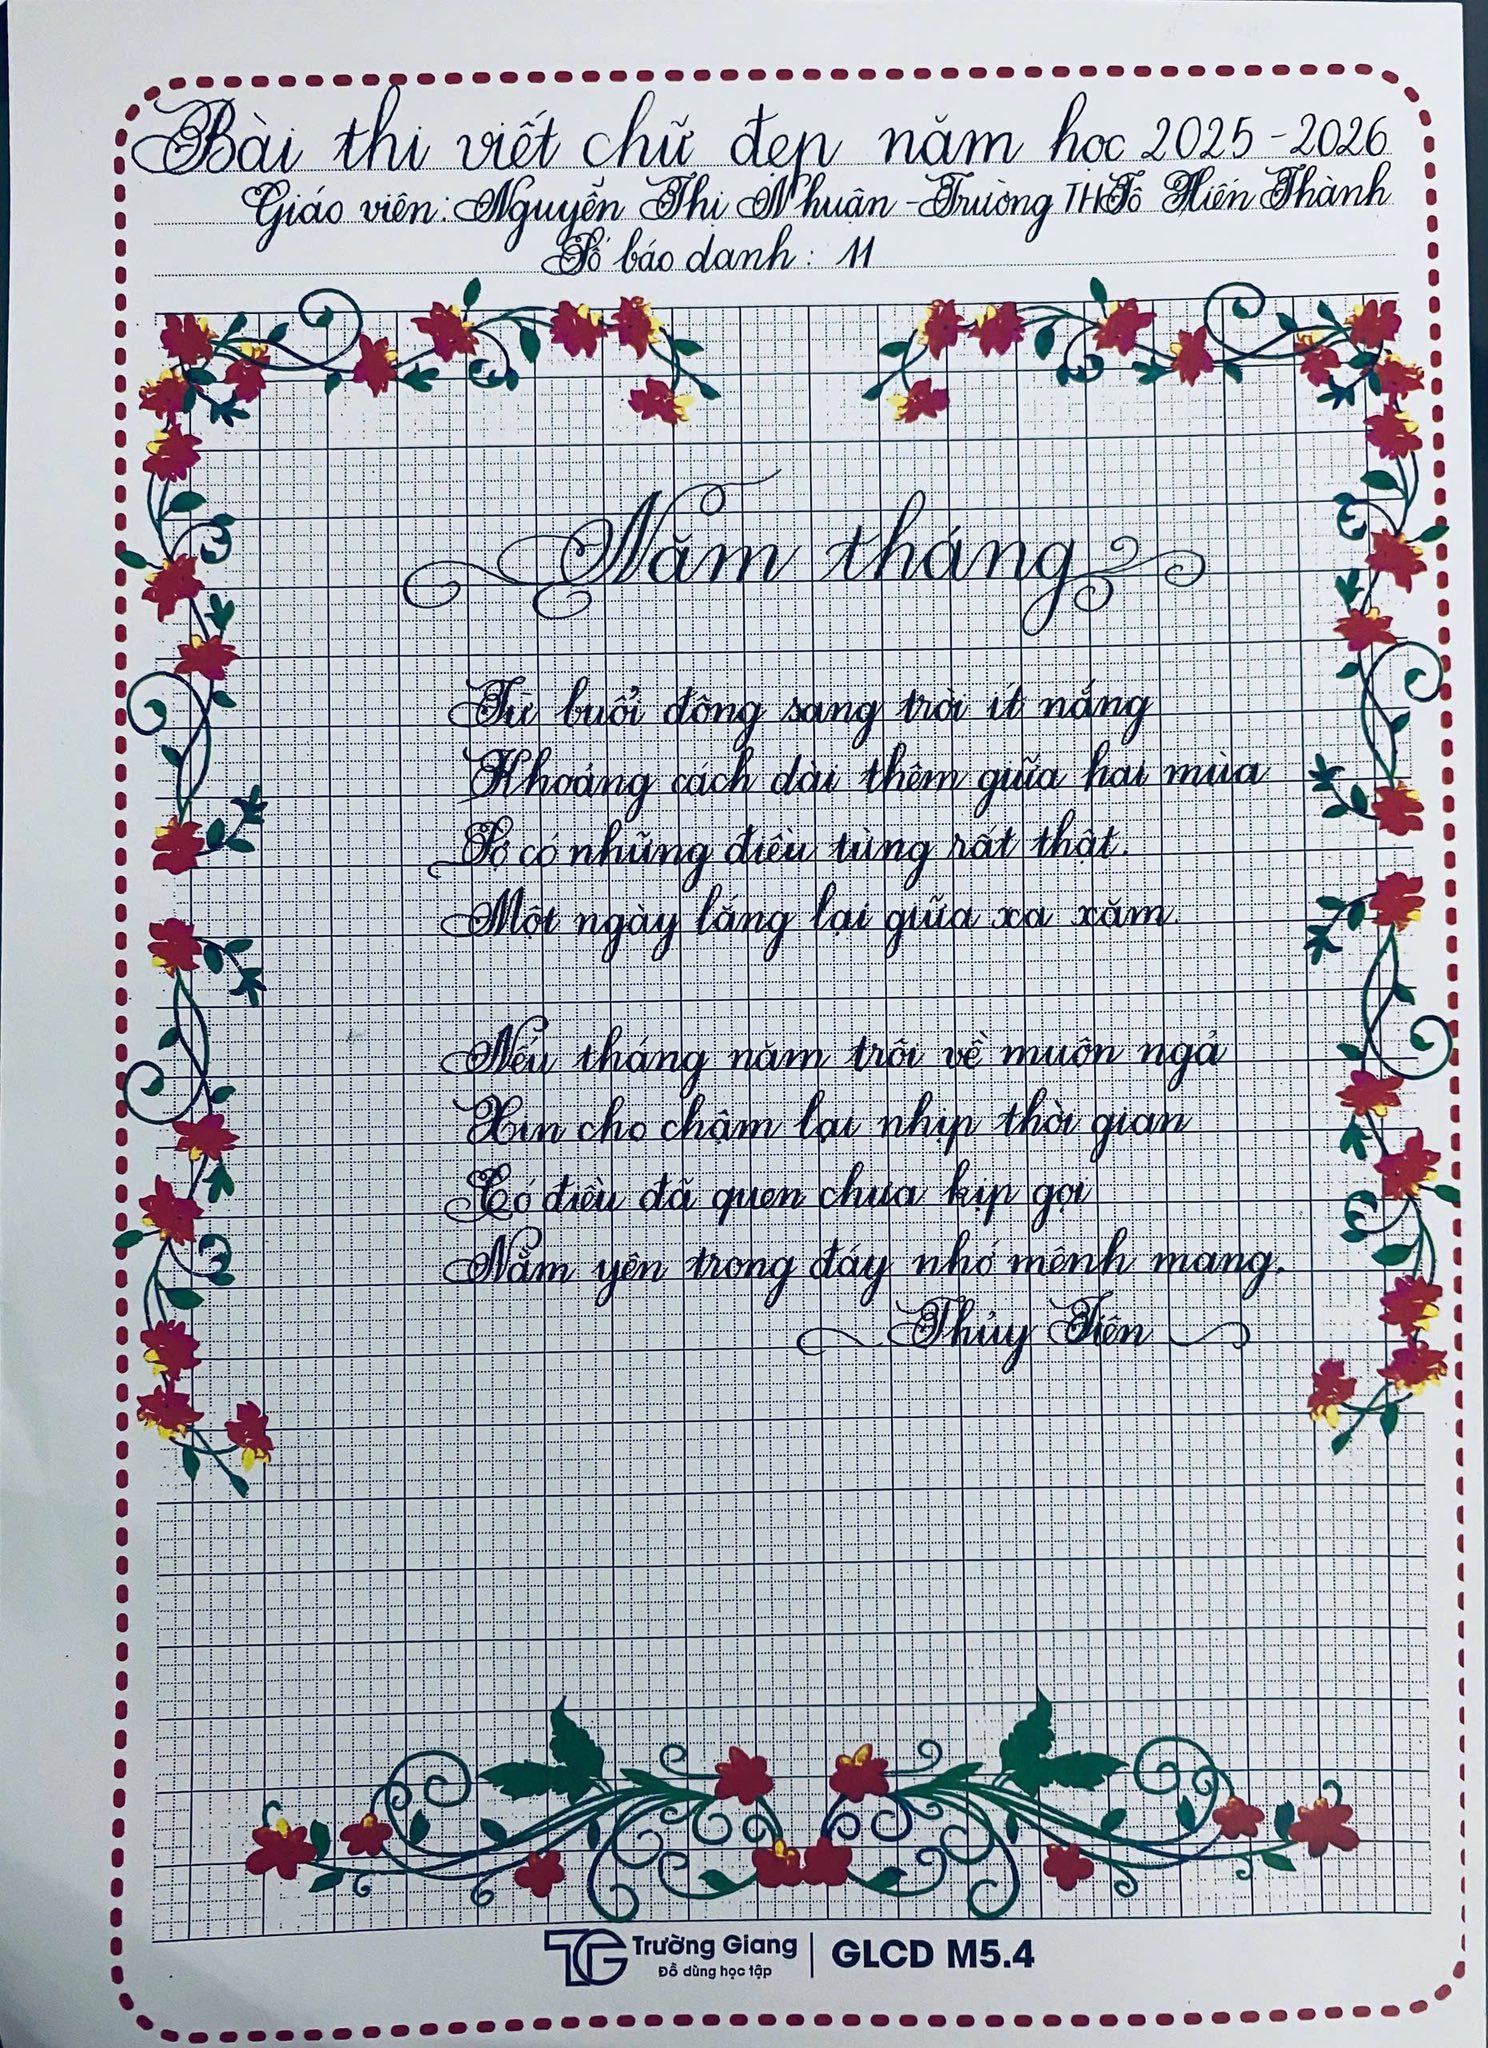 Bài thi viết chữ đẹp năm học 2025 - 2026
Giáo viên: Nguyễn Thị Nhuận - Trường TH Tô Hiến Thành
Số báo danh: 11
Năm tháng
Từ buổi đông sang trời ít nắng
Khoảng cách dài thêm giữa hai mùa
Sợ có những điều từng rất thật.
Một ngày lắng lại giữa xa xăm.
Nếu tháng năm trôi về muôn ngả
Xin cho chậm lại nhịp thời gian
Có điều đã quen chưa kịp gọi
Nằm yên trong đáy nhớ mênh mang.
Thủy Tiên
TG Trường Giang | GLCD M5.4
Đồ dùng học tập